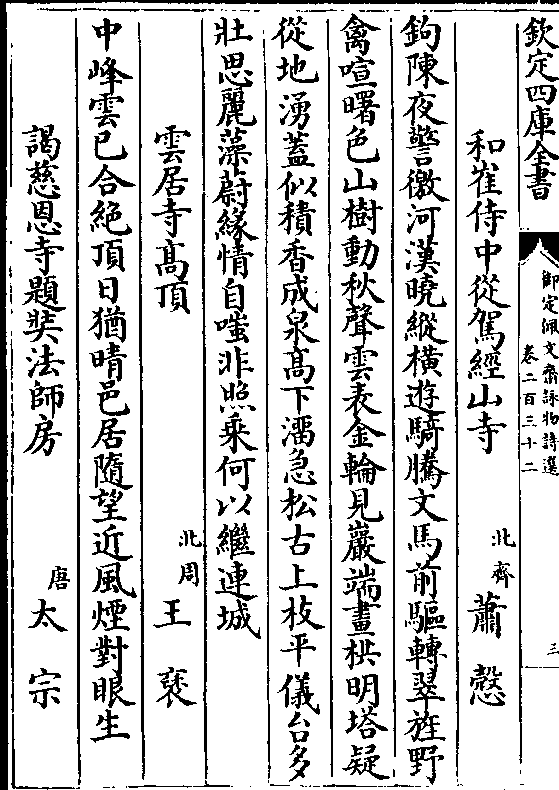 欽定四庫全書
御定佩文齋詠物詩選
卷二百三十二
三
和崔侍中從駕經山寺
北齊
蕭慤
鉤陳夜警徼河漢曉縱橫遊騎騰文馬前驅轉翠旌野
禽喧曙色山樹動秋聲雲表金輪見巖端畫栱明塔疑
從地湧蓋似積香成泉高下溜急松古上枝平儀台多
壯思麗藻蔚緣情自嗤非照乘何以繼連城
雲居寺高頂
北周
王褒
中峰雲已合絶頂日猶晴邑居隨望近風煙對眼生
謁慈恩寺題奘法師房
唐
太宗